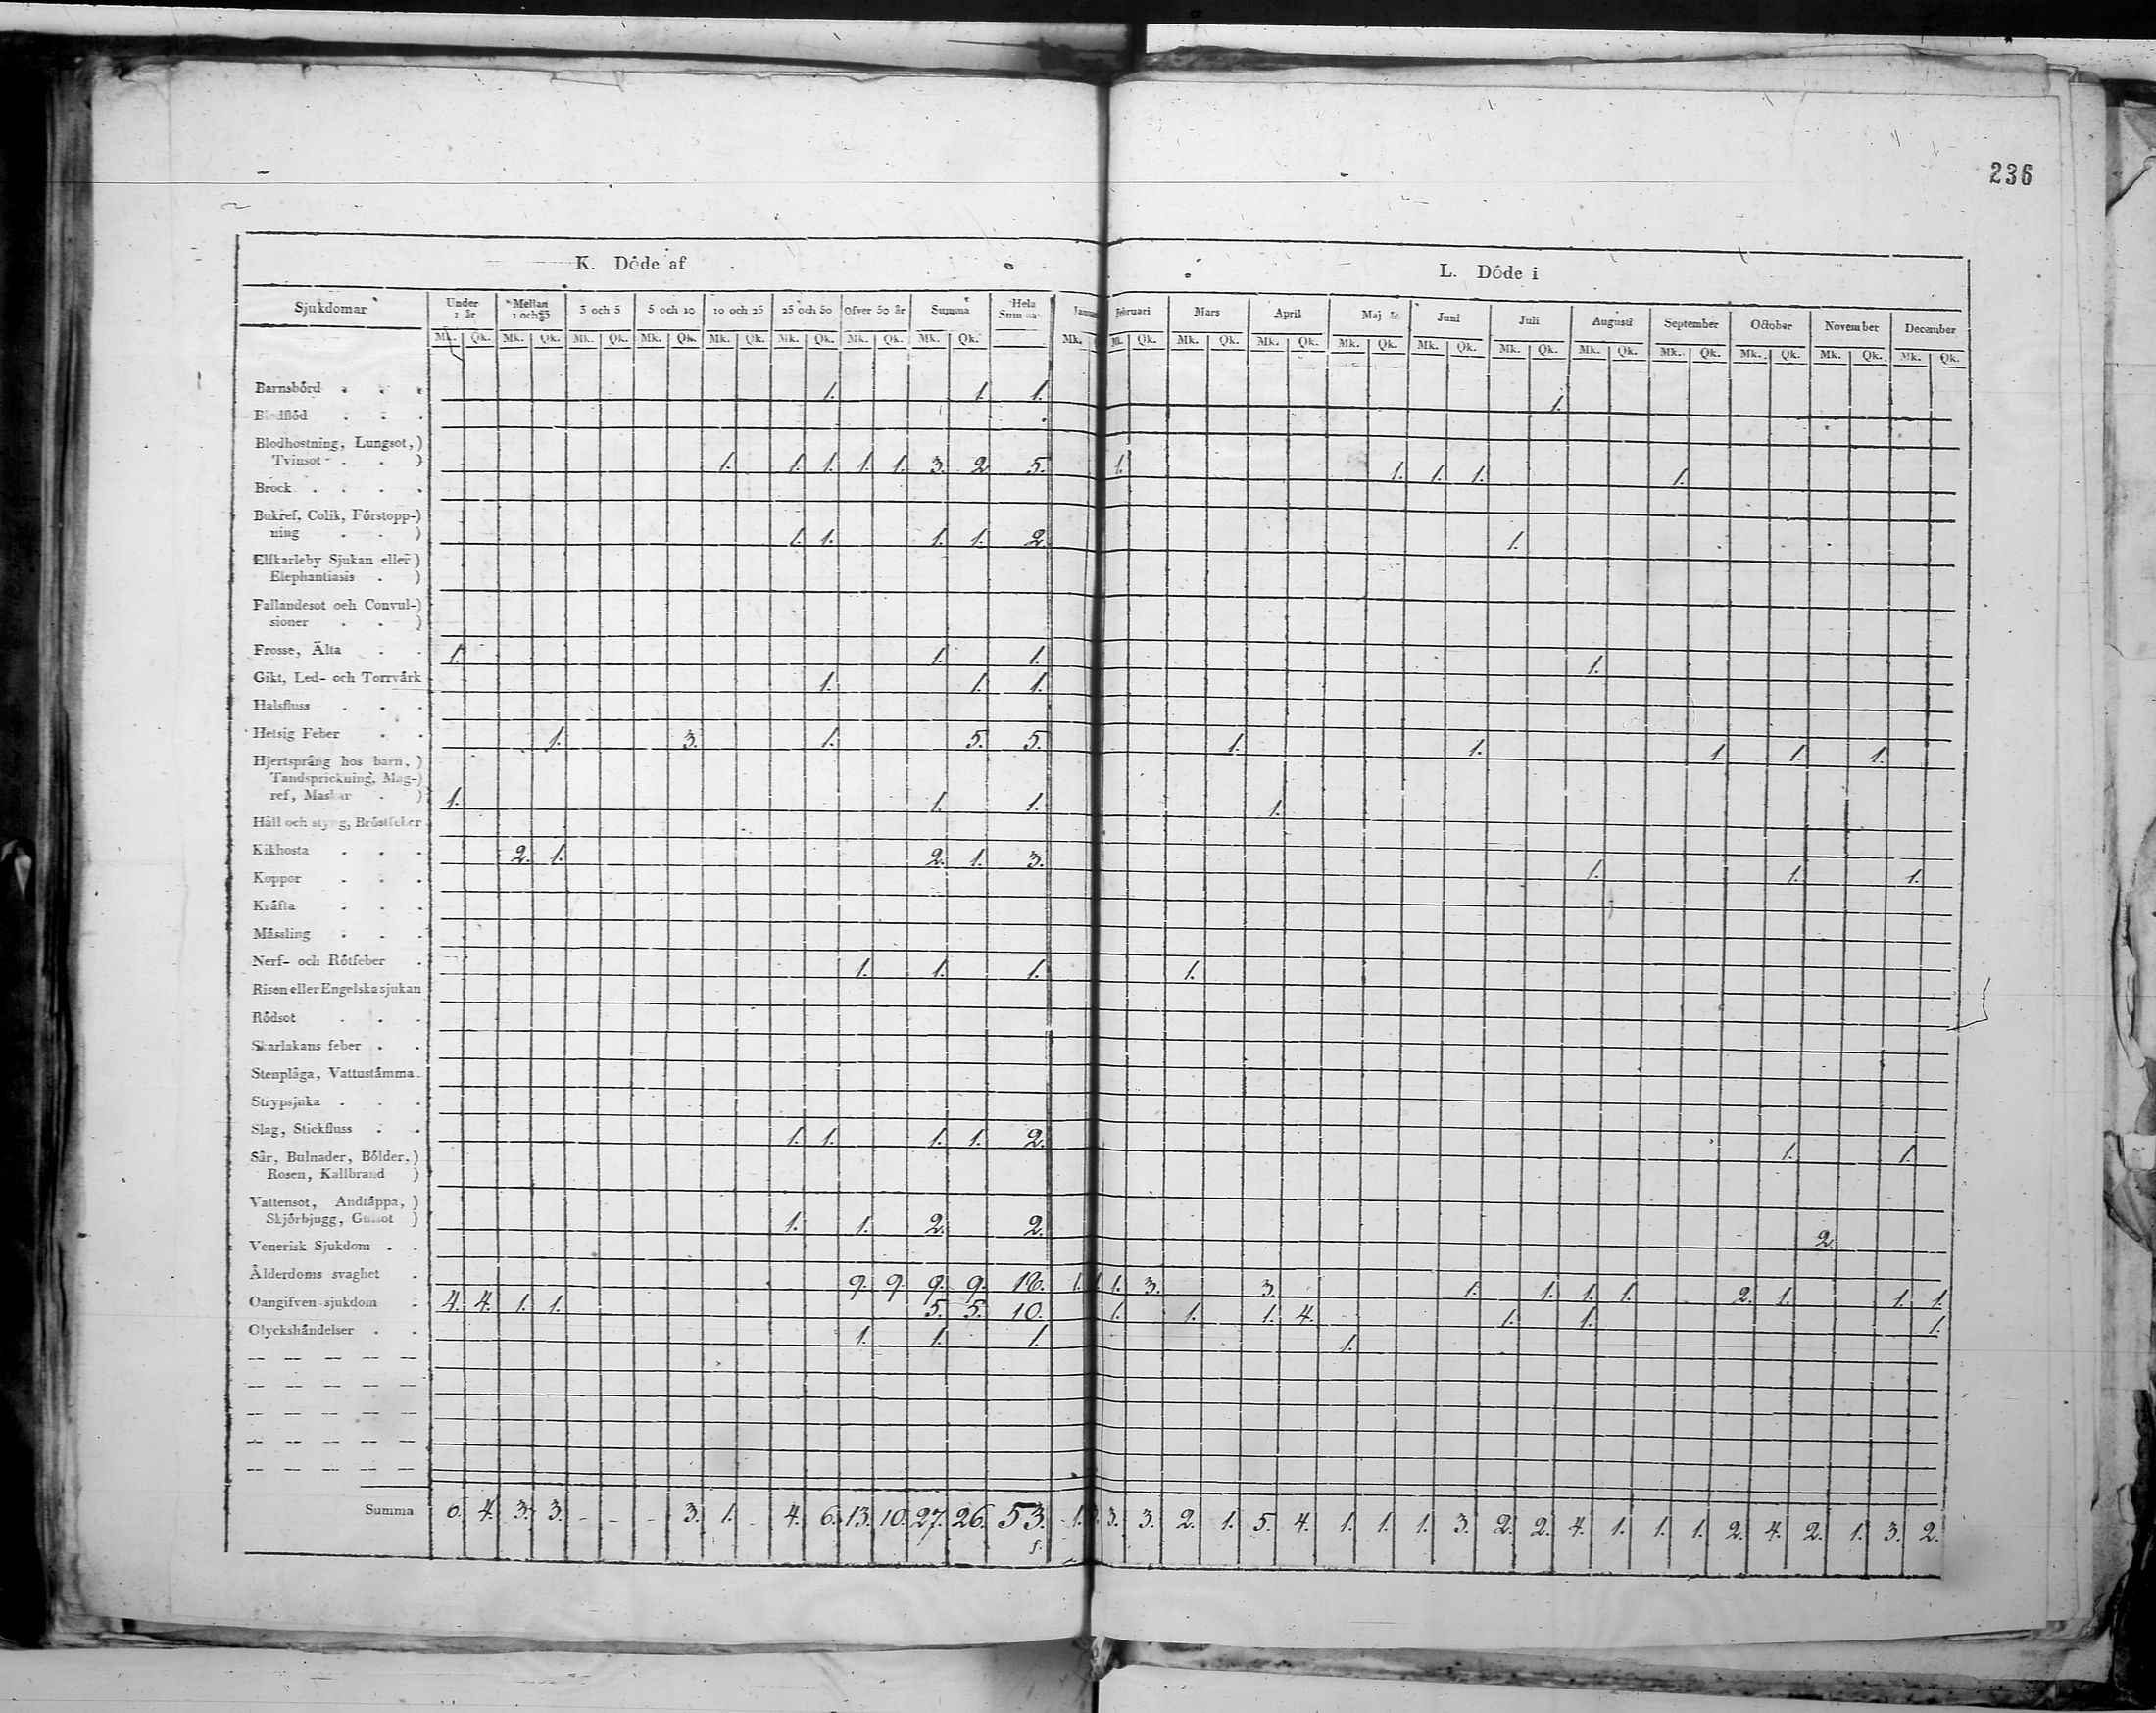 236
K. Dôde af
L. Dôde i
Sjukdomar Under 1 år Mellan 1 och 3 3 och 5 5 och 10 10 och 25 25 och 50 Ofver 50 år Summa Hela Summa Februari Mars April Maj Juni Juli Augusti September October November December
Mk. Qk. Mk. Qk. Mk. Qk. Mk. Qk. Mk. Qk. Mk. Qk. Mk. Qk. Mk. Qk. Mk. Qk. Mk. Qk. Mk. Qk. Mk. Qk. Mk. Qk. Mk. Qk. Mk. Qk. Mk. Qk. Mk. Qk. Mk. Qk. Mk. Qk.
Barnsbörd . . . 1. 1. 1. 1.
Blodflöd . . .
Blodhostning, Lungsot,)
Tvinsot . . ) 1. 1. 1. 1. 1. 3. 2 5. 1. 1. 1. 1. 1.
Brock . . . .
Bukref, Colik, Förstopp-)
ning . . ) 1. 1. 1. 1. 2. 1.
Elfkarleby Sjukan eller)
Elephantiasis . )
Fallandesot och Convul-)
sioner . . )
Frosse, Älta . . 1. 1. 1. 1.
Gikt, Led- och Torrvärk 1. 1. 1.
Halsfluss . . .
Hetsig Feber . . 1. 3. 1. 5. 5. 1. 1. 1. 1. 1.
Hjertsprång hos barn, )
Tandsprickning, Mag-)
ref, Maskar . ) 1. 1. 1. 1.
Håll och styng, Bröstfeber
Kikhosta . . . 2. 1. 2. 1. 3. 1. 1. 1.
Koppor . . .
Kräfta . . .
Mässling . . .
Nerf- och Rötfeber . 1. 1. 1. 1.
Risen eller Engelska sjukan
Rödsot . . .
Skarlakans feber . .
Stenplåga, Vattustämma.
Strypsjuka . . .
Slag, Stickfluss . . 1. 1. 1. 1. 2. 1. 1.
Sår, Bulnader, Bölder,)
Rosen, Kallbrand )
Vattensot, Andtäppa, )
Skjörbjugg, Gulsot ) 1. 1. 2. 2. 2.
Venerisk Sjukdom . .
Ålderdoms svaghet . 9. 9. 9. 9. 18. 1. 1. 1. 3. 3. 1. 1. 1. 1. 2. 1. 1. 1.
Oangifven sjukdom . 4. 4. 1. 1. 5. 5. 10. 1. 1. 1. 4. 1. 1. 1.
Olyckshändelser . . 1. 1. 1. 1.
— — — — —
— — — — —
— — — — —
— — — — —
— — — — —
Summa 6. 4. 3. 3. - - - 3. 1. - 4. 6. 13. 10. 27. 26. 53. 1. 3. 3. 2. 1. 5. 4. 1. 1. 1. 3. 2. 2. 4. 1. 1. 1. 2. 4. 2. 1. 3. 2.